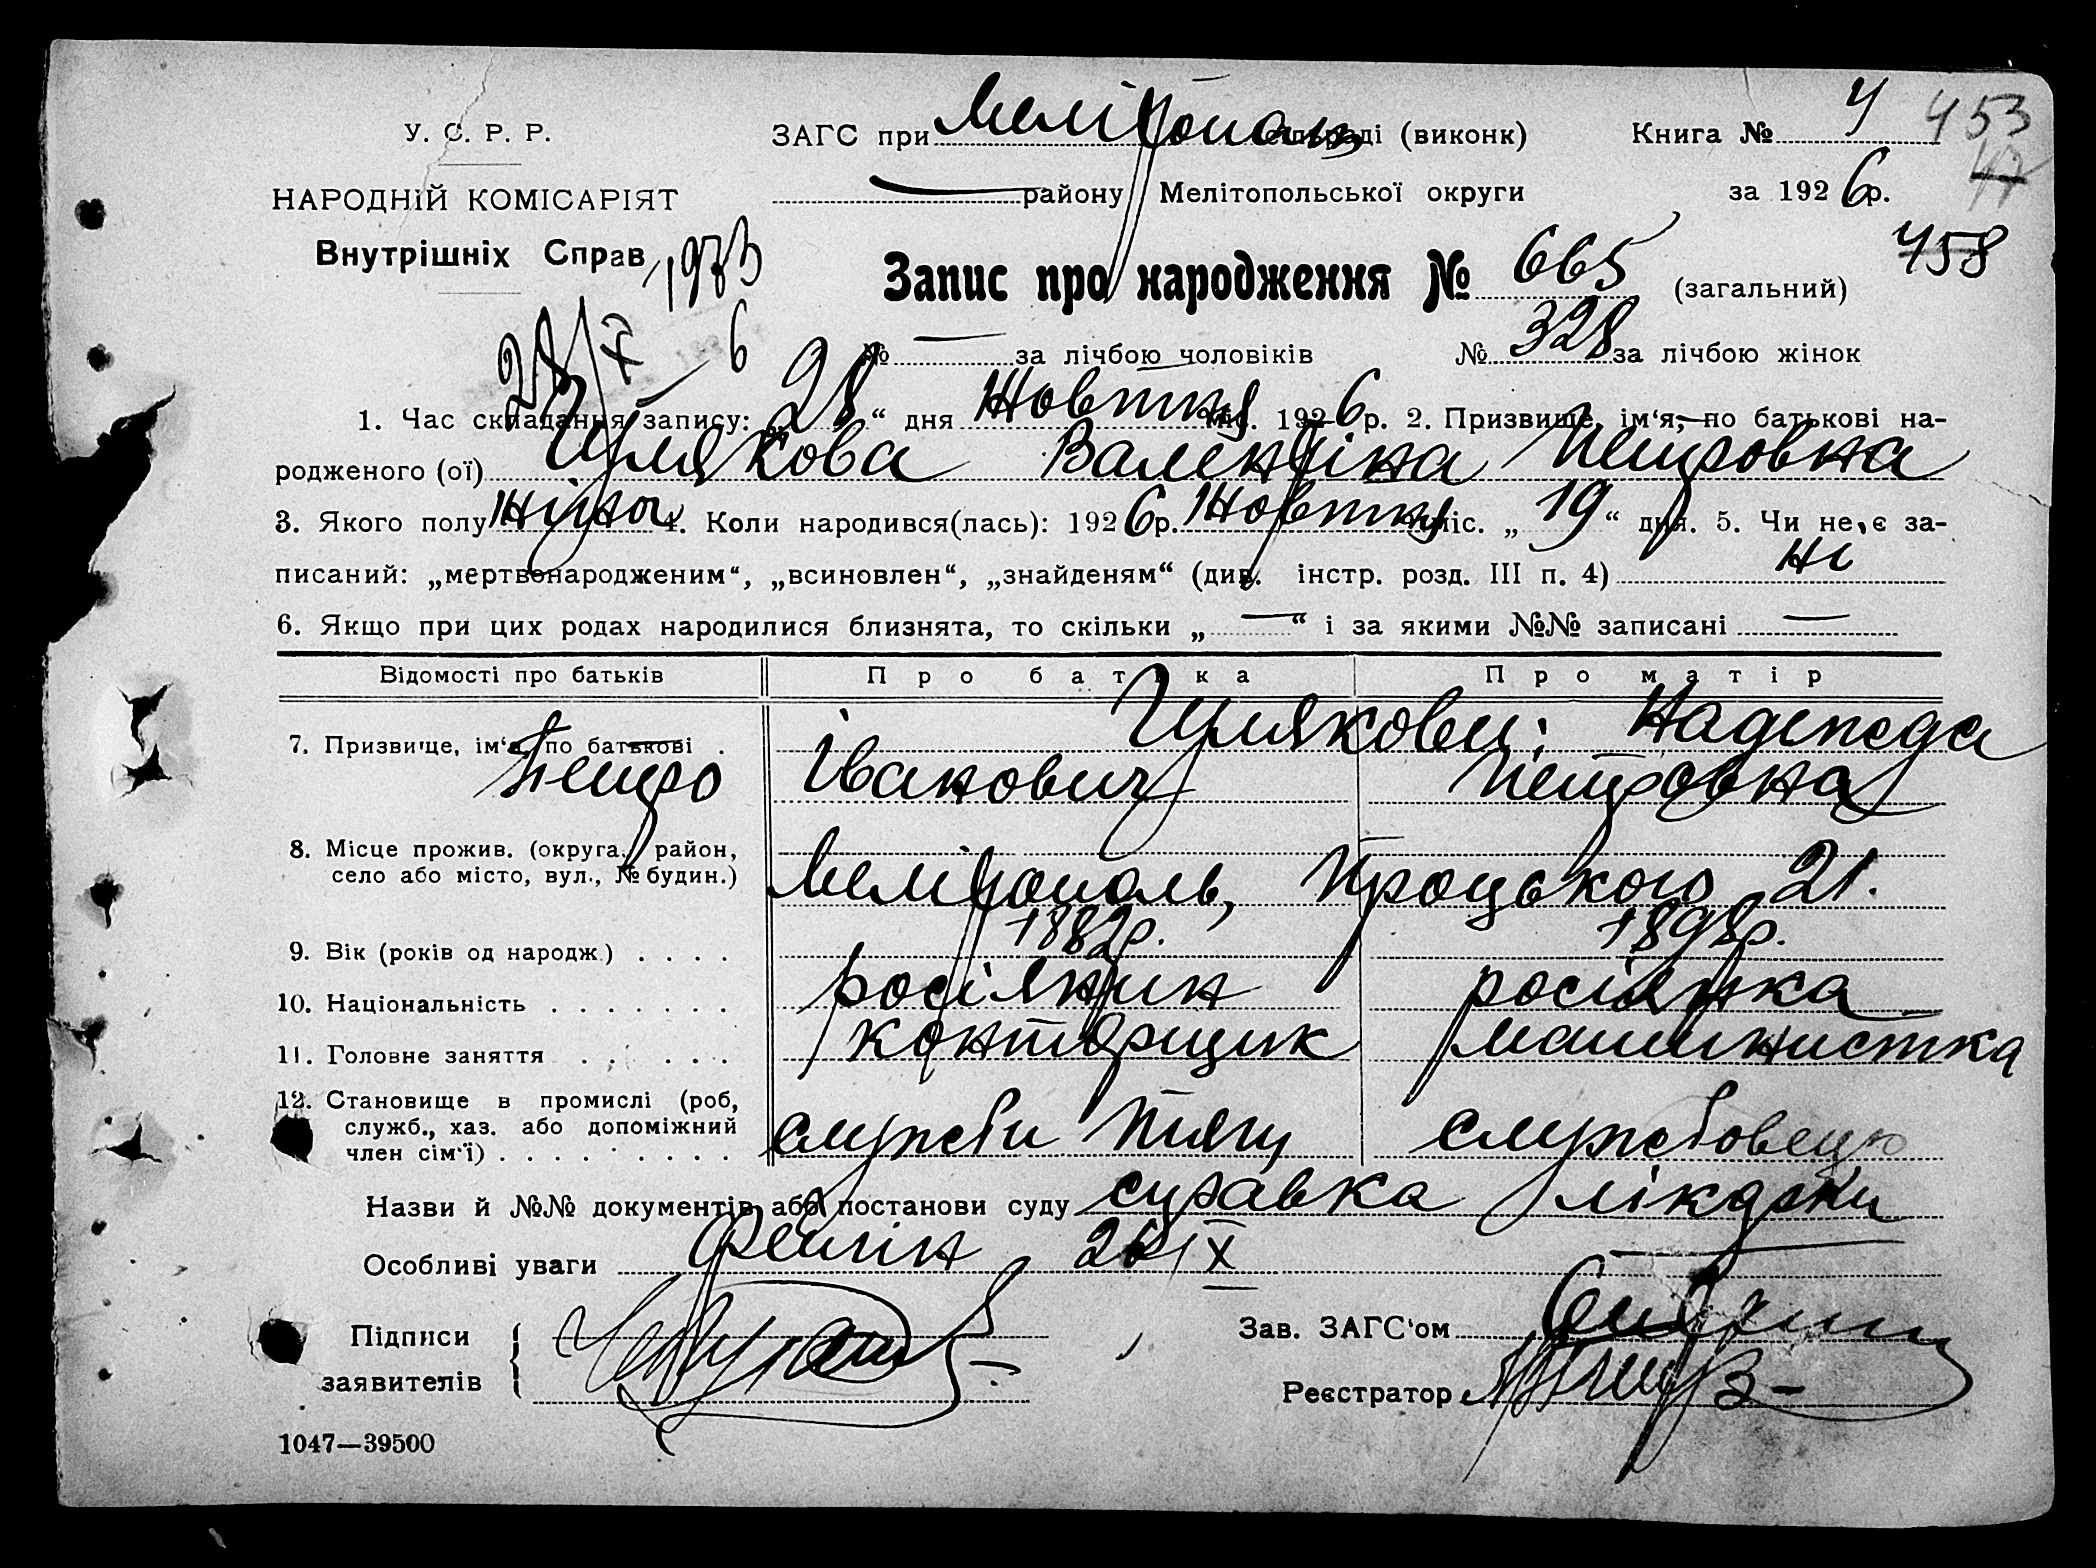 У. С. Р. Р.
ЗАГС при Мелітополь сільраді (виконк)
Книга № 4
453
НАРОДНІЙ КОМІСАРІЯТ
— району Мелітопольської округи
за 1926 р.
47
Внутрішніх Справ
Запис про народження № 665 (загальний)
458
28/X — 6
№ — за лічбою чоловіків
№ 328 за лічбою жінок
1. Час складання запису: „ 28 “ дня Жовтня міс. 1926 р. 2. Призвище, ім‘я, по батькові на-
родженого (ої) Валентіна Петровна
3. Якого полу жіноч 4. Коли народився(лась): 1926 р. Жовтня міс. „ 19 “ дня. 5. Чи не є за-
писаний: „мертвонародженим“, „всиновлен“, „знайденям“ (див. інстр. розд. III п. 4) ні
6. Якщо при цих родах народилися близнята, то скільки „ — “ і за якими №№ записані —
Відомості про батьків
Про батька
Про матір
7. Призвище, ім‘я, по батькові .
Надежда
Петро Іванович
Петровна
8. Місце прожив. (округа, район,
село або місто, вул., № будин.)
Мелітополь, Троцького 21.
9. Вік (років од народж.) . . . .
1882р.
1898р.
10. Національність . . . . . . .
росіянин
росіянка
11. Головне заняття . . . . . .
конторщик
машинистка
12. Становище в промислі (роб,
служб., хаз. або допоміжний
член сім‘ї) . . . . . . . . . .
служби тяги
службовець
Назви й №№ документів або постанови суду справка
Особливі уваги
Підписи
заявителів
Зав. ЗАГС‘ом
Реєстратор
1047—39500